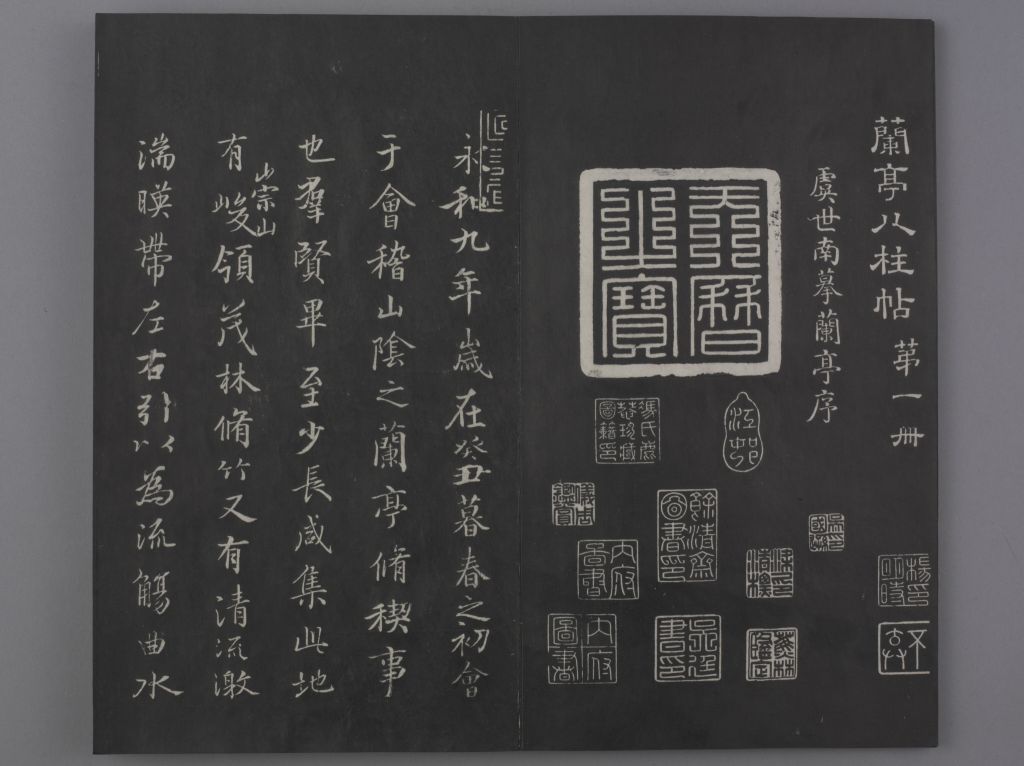 蘭亭八柱帖 第一冊
虞世南摹蘭亭序
天曆之寶
江邨
餘清齋圖書印
內府圖書
內府圖書
永和九年歲在癸丑暮春之初會
于會稽山陰之蘭亭脩稧事
也羣賢畢至少長咸集此地
有崇山峻領茂林脩竹又有清流激
湍暎帶左右引以為流觴曲水